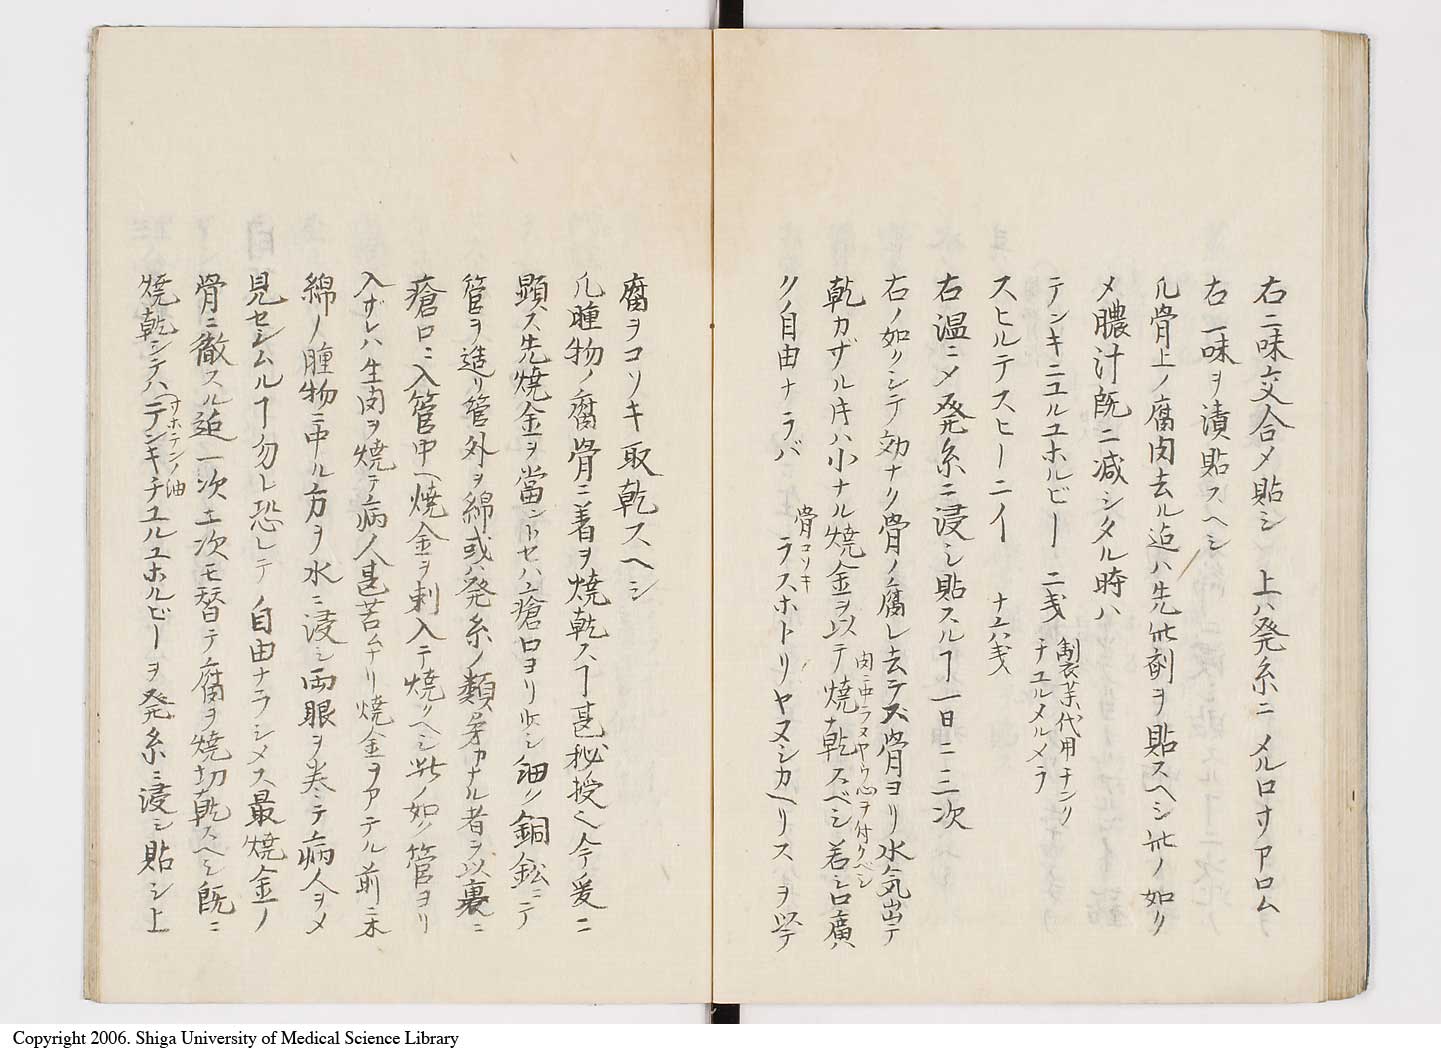 右二味交合〆貼シ 上ハ発糸ニ メルロサアロム
右一味ヲ漬貼スヘシ
凡骨上ノ腐肉去ル迠ハ先此剤ヲ貼スヘシ此ノ如ク
〆膿汁既ニ减シタル時ハ
テンキニユルユホルビー 二戔 製薬代用チンク チユルメルメラ
スヒルテスヒーニイ 十六戔
右温ニ〆発糸ニ浸シ貼スルヿ一日二三次
右ノ如クシテ効ナク骨ノ腐レ去テズ骨ヨリ水気出テ
乾カザル片ハ小ナル焼金ヲ以テ焼キ乾スベシ若シ口廣ハ
肉ニ中ラヌヤウ心ヲ付クベシ
クノ自由ナラバ ラスホトリヤヌシカヘリスヲ以テ
骨コソキ
腐ヲコソキ取乾スヘシ
凡腫物ノ腐骨ニ着ヲ焼乾スヿ甚秘授也今爰ニ
顕ス先焼金ヲ當ントセハ疮口ヨリ少シ細ク銅鈆ニテ
管ヲ造リ管外ヲ綿或ハ発糸ノ類柔カナル者ヲ以裹ミ
瘡口ニ入管中ヘ焼金ヲ刺入テ焼クヘシ此ノ如ク管ヨリ
入ザレハ生肉ヲ焼テ病人甚苦ムナリ焼金ヲアテル前ニ木
綿ノ腫物ニ中ル方ヲ水ニ浸シ両眼ヲ巻ミテ病人ヲ〆
見セシムルヿ勿レ恐レテノ自由ナラシメス最焼金ノ
骨ニ徹スル迠一次二次モ替テ腐ヲ焼切乾スヘシ既ニ
焼乾シテハテンキチユルユホルビーヲ発糸ニ浸シ貼シ上
サホテンノ油
Copyright 2006. Shiga University of Medical Science Library